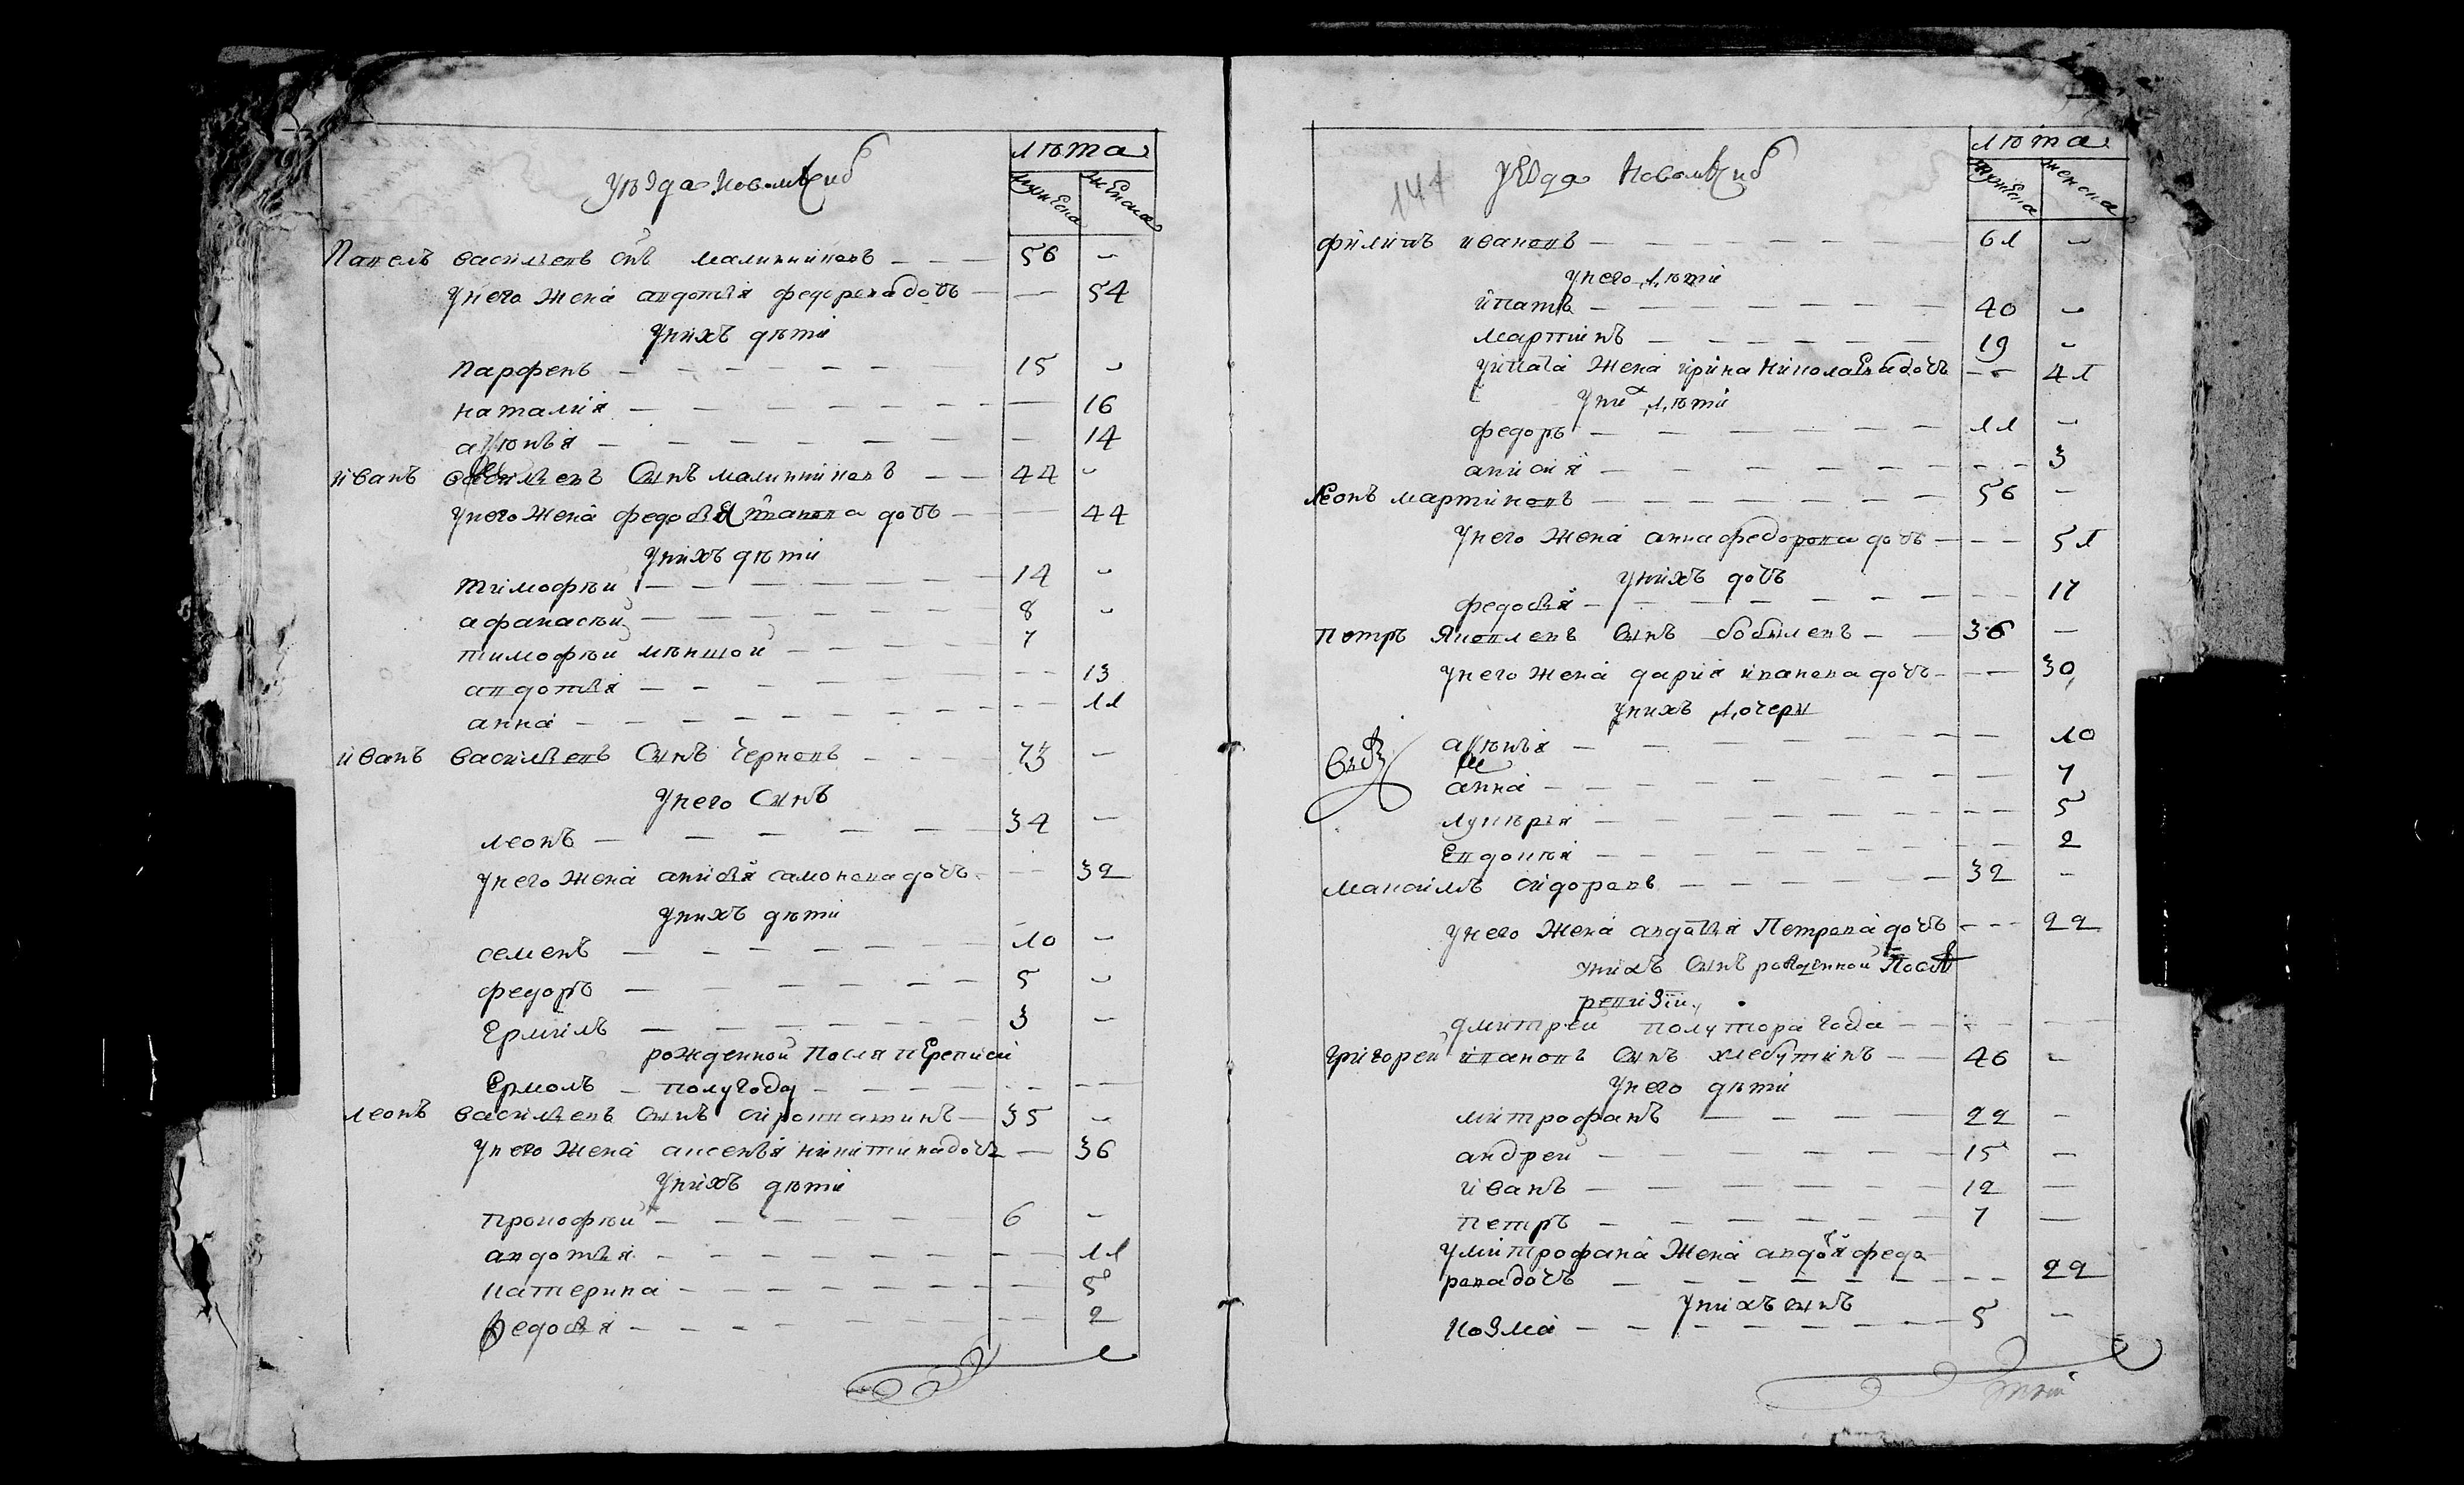 лѣта
уѣзда
мужеска женска
Павелъ васильевъ снъ малининовъ — 56 —
унего жена авдотья федоровадочь — 54
унихъ дѣти
парфенъ — 15 —
наталия — 16
аксѣнья — 14
иванъ васильевъ сынъ малининовъ — 44 —
унего жена федосья иванова дочь — 44
унихъ дѣти
тимофѣй — 14 —
афанасѣй — 8 —
тимофѣй мѣншой — 7
авдотья — 13
анна — 11
иванъ васильевъ сынъ черновъ — 73 —
унего сынъ
леонъ — 34 —
унего жена анисья самонова дочь — 32
унихъ дѣти
семенъ — 10 —
федоръ — 5 —
Ермилъ — 3 —
рожденной после переписи
Ермолъ — полугоду —
леонъ васильевъ сынъ — 35 —
унего жена аксенья никитинадочь — 36
унихъ дѣти
прокофѣй — 6 —
авдотья — 11
катерина — 5
федосья — 2
лѣта
уезда
мужеска женска
филипъ ивановъ — 61 —
унего дѣти
ипатъ — 40 —
мартинъ — 19 —
уипата жена ирина николаевадочь — 41
уних дѣти
федоръ — 11 —
анисия — 3
леонъ мартиновъ — 56 —
унего жена анна федорова дочь — 51
унихъ дочь
федосья — 17
петръ яковлевъ сынъ бобылевъ — 36 —
унего жена дария иванова дочь — 30
унихъ дочери
аксѣнья — 10
анна — 7
лукѣрья — 5
Евдокѣя — 2
манаилъ сидоровъ — 32 —
унего жена авдотья Петрова дочь — 22
унихъ сынъ рожденной послѣ
ревизии
дмитрей полутора года —
григорей ивановъ сынъ хлебутинъ — 46 —
унего дѣти
митрофанъ — 22 —
андрей — 15 —
иванъ — 12 —
петръ — 7 —
умитрофана жена авдотя федо
ровадочь — 22
унихъ сынъ
козма — 5 —